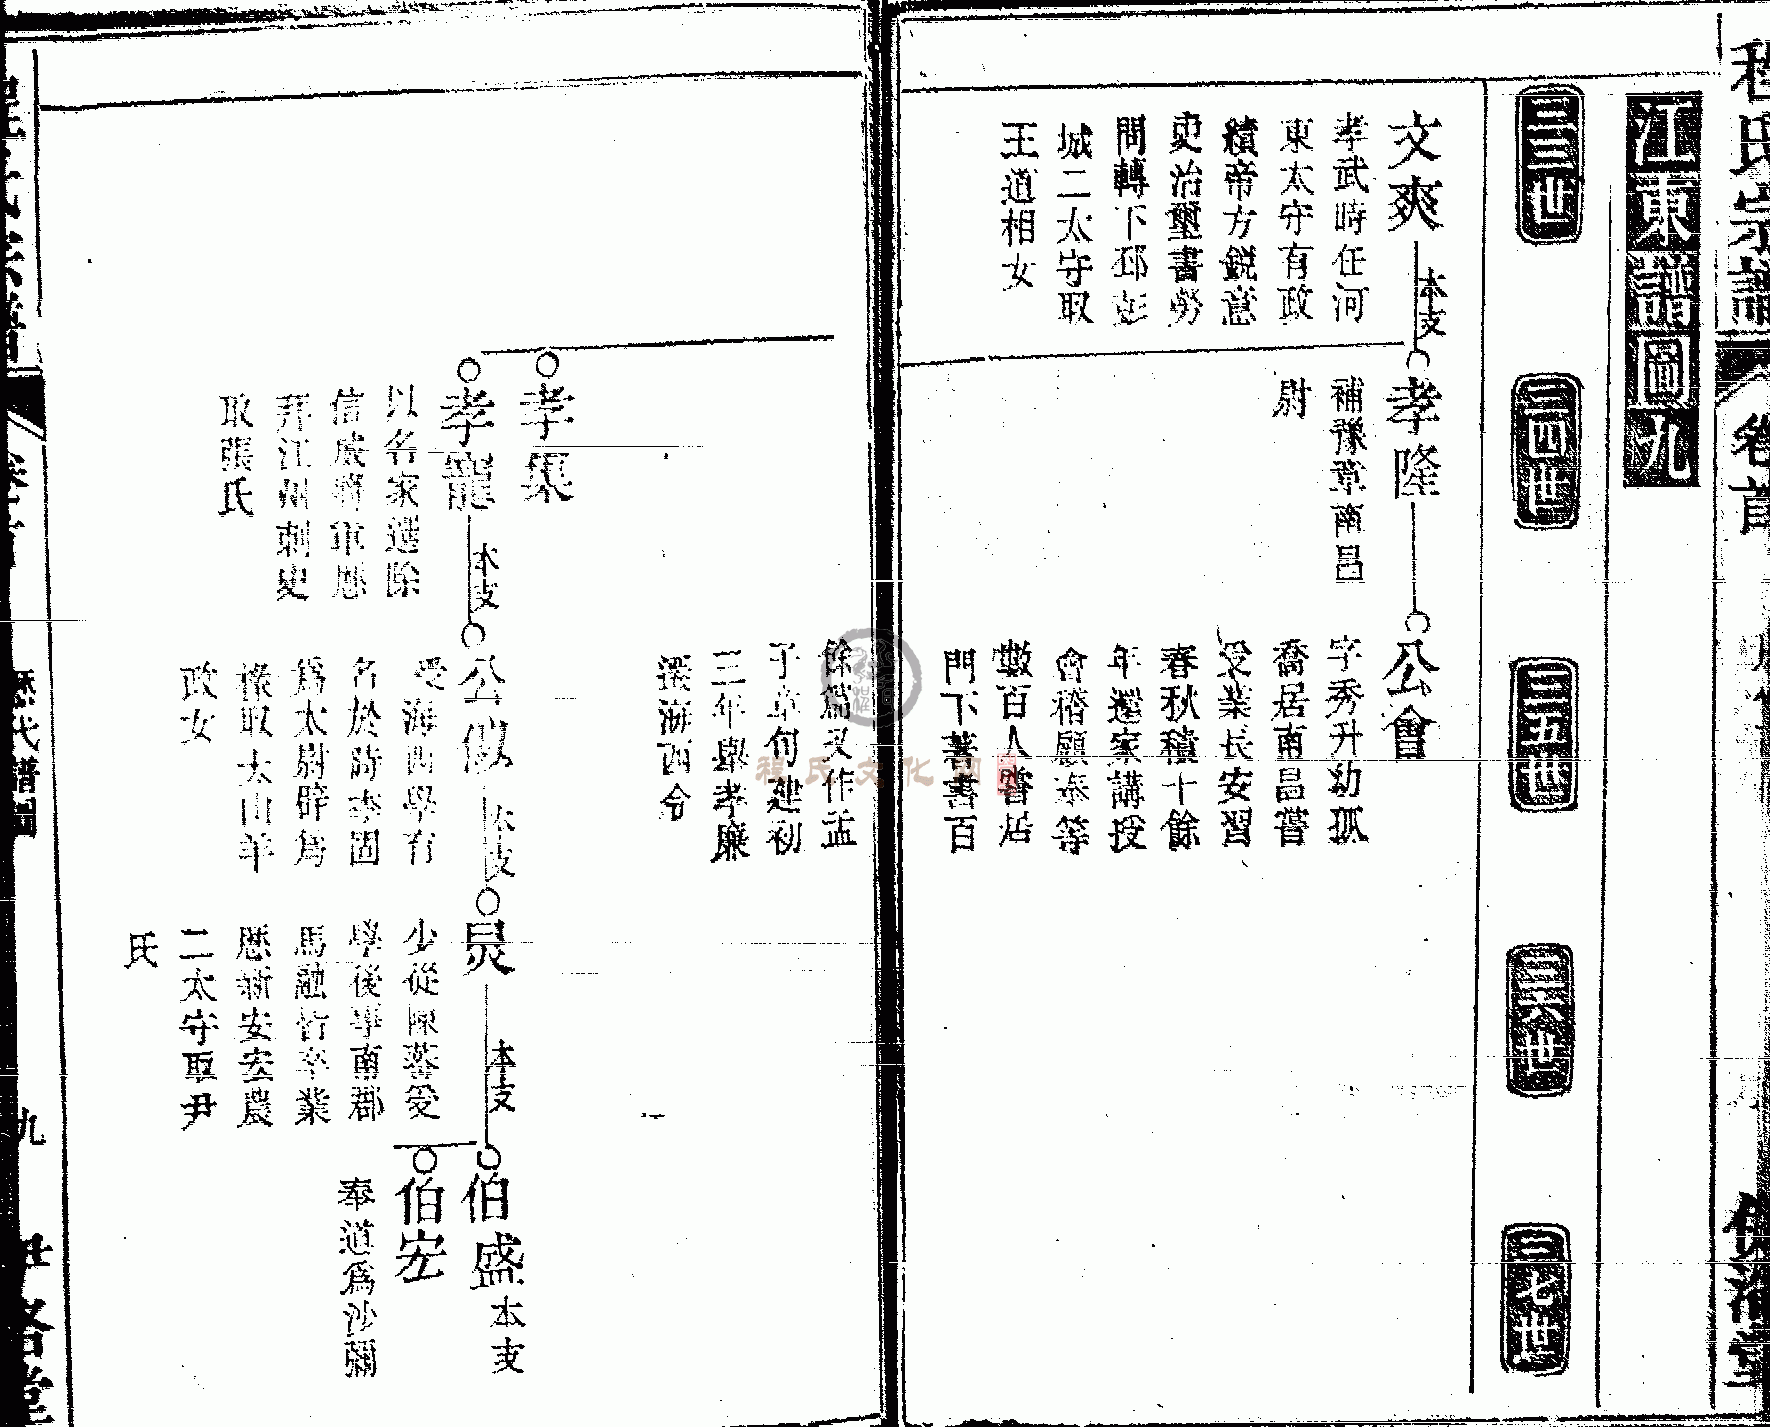 程氏宗譜
卷首
江東譜圖九
三三世
三四世
三五世
三六世
三七世
文爽
本支
孝武時任河
東太守有政
績帝方鋭意
吏治璽書勞
問轉下邳彭
城二太守取
王道相女
孝隆
補豫章南昌
尉
公會
字秀升幼孤
喬居南昌嘗
受業长安習
春秋積十餘
年還家講授
會稽顧奉等
數百人嘗居
門下著書百
餘篇又作孟
子章句建初
三年舉孝廉
遷海西令
孝渠
孝寵
本支
以名家選除
信威將軍歷
拜江州刺史
取張氏
公儆
本支
受海西學有
名於時李固
爲太尉辟爲
椽取太山羊
政女
炅
本支
少從陳蕃受
學後畢南郡
馬融竹卒業
歷新安宏農
二太守取尹
氏
伯盛
本支
伯宏
奉道爲沙彌
程氏宗譜
卷首
歷代譜圖
九
洛堂
程氏文化网